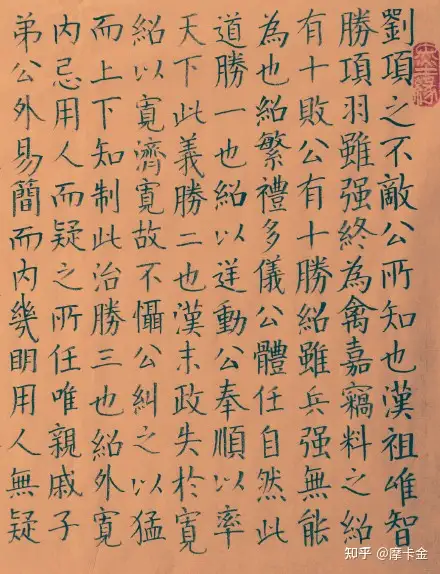 劉項之不敵公所知也漢祖唯智
勝項羽雖强終為禽嘉竊料之紹
有十敗公有十勝紹雖兵强無能
為也紹繁禮多儀公體任自然此
道勝一也紹以逆動公奉順以率
天下此義勝二也漢末政失於寬
紹以寬濟寬故不懾公糾之以猛
而上下知制此治勝三也紹外寬
内忌用人而疑之所任唯親戚子
弟公外易簡而内幾明用人無疑
知乎 @摩卡金